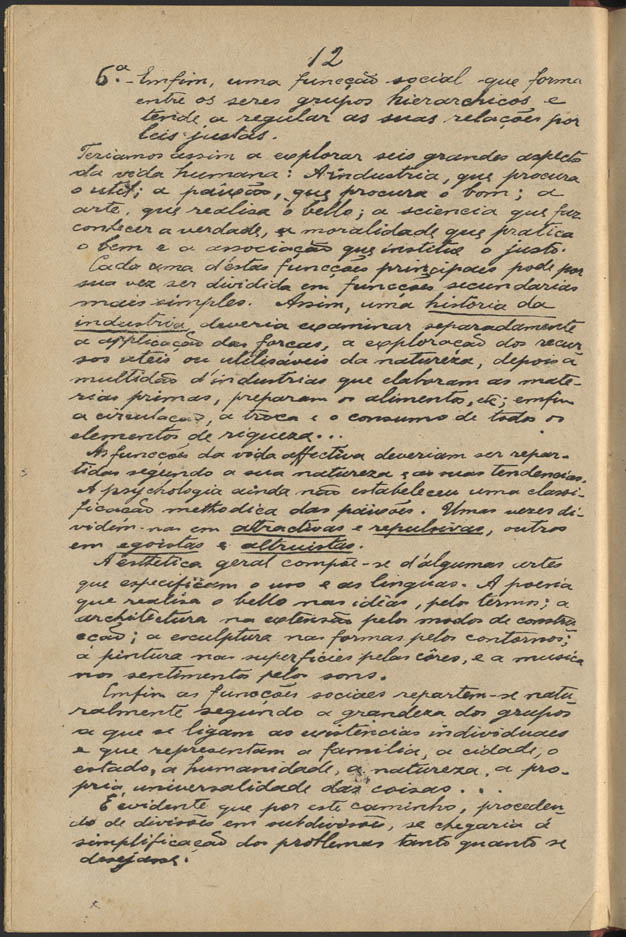 12
6.ª - Emfim, uma funcção social que forma
entre os seres grupos hierarchicos e
tende a regular as suas relações por
leis justas.
Teriamos assim a explorar seis grandes aspecto
da vida humana: A industria, que procura
o util; a paixão, que procura o bom; a
arte, que realisa o bello; a sciencia que faz
conhecer a verdade, a moralidade que pratica
o bem e a associação que institue o justo.
Cada uma d'estas funcções principaes pode por
sua vez ser dividida em funcções secundarias
mais simples. Assim, uma historia da
industria, deveria examinar separadamente
a applicação das forças, a exploração dos recur
sos uteis ou utilisáveis da natureza, depois a
multidão d'industrias que elaboram as mate-
rias primas, preparam os alimentos, etc; emfim
a circulação, a troca e o consumo de todos os
elementos de riqueza...
As funcções da vida affectiva deveriam ser repar-
tidas segundo a sua natureza e as suas tendencias.
A psychologia ainda não estabeleceu uma classi-
ficação methodica das paixões. Umas vezes di-
videm-nas em attractivas e repulsivas, outros
em egoistas e altruistas.
A esthética geral compõe-se d'algumas artes
que especificam o uso e as linguas. A poesia
que realisa o bello nas idéas, pelo termo; a
architectura na extensão pelos modos de constru
cção; a esculptura nas formas pelos contornos;
a pintura nas superficies pelas côres, e a musica
nos sentimentos pelos sons.
Emfim as funcções sociaes repartem-se natu
ralmente segundo a grandeza dos grupos
a que se ligam as existencias individuaes
e que representam a familia, a cidade, o
estado, a humanidade, a natureza, a pro-
pria universalidade das coisas...
É evidente que por este caminho, proceden-
do de divisões em subdivisões, se chegaria á
simplificação dos problemas tanto quanto se
desejasse.